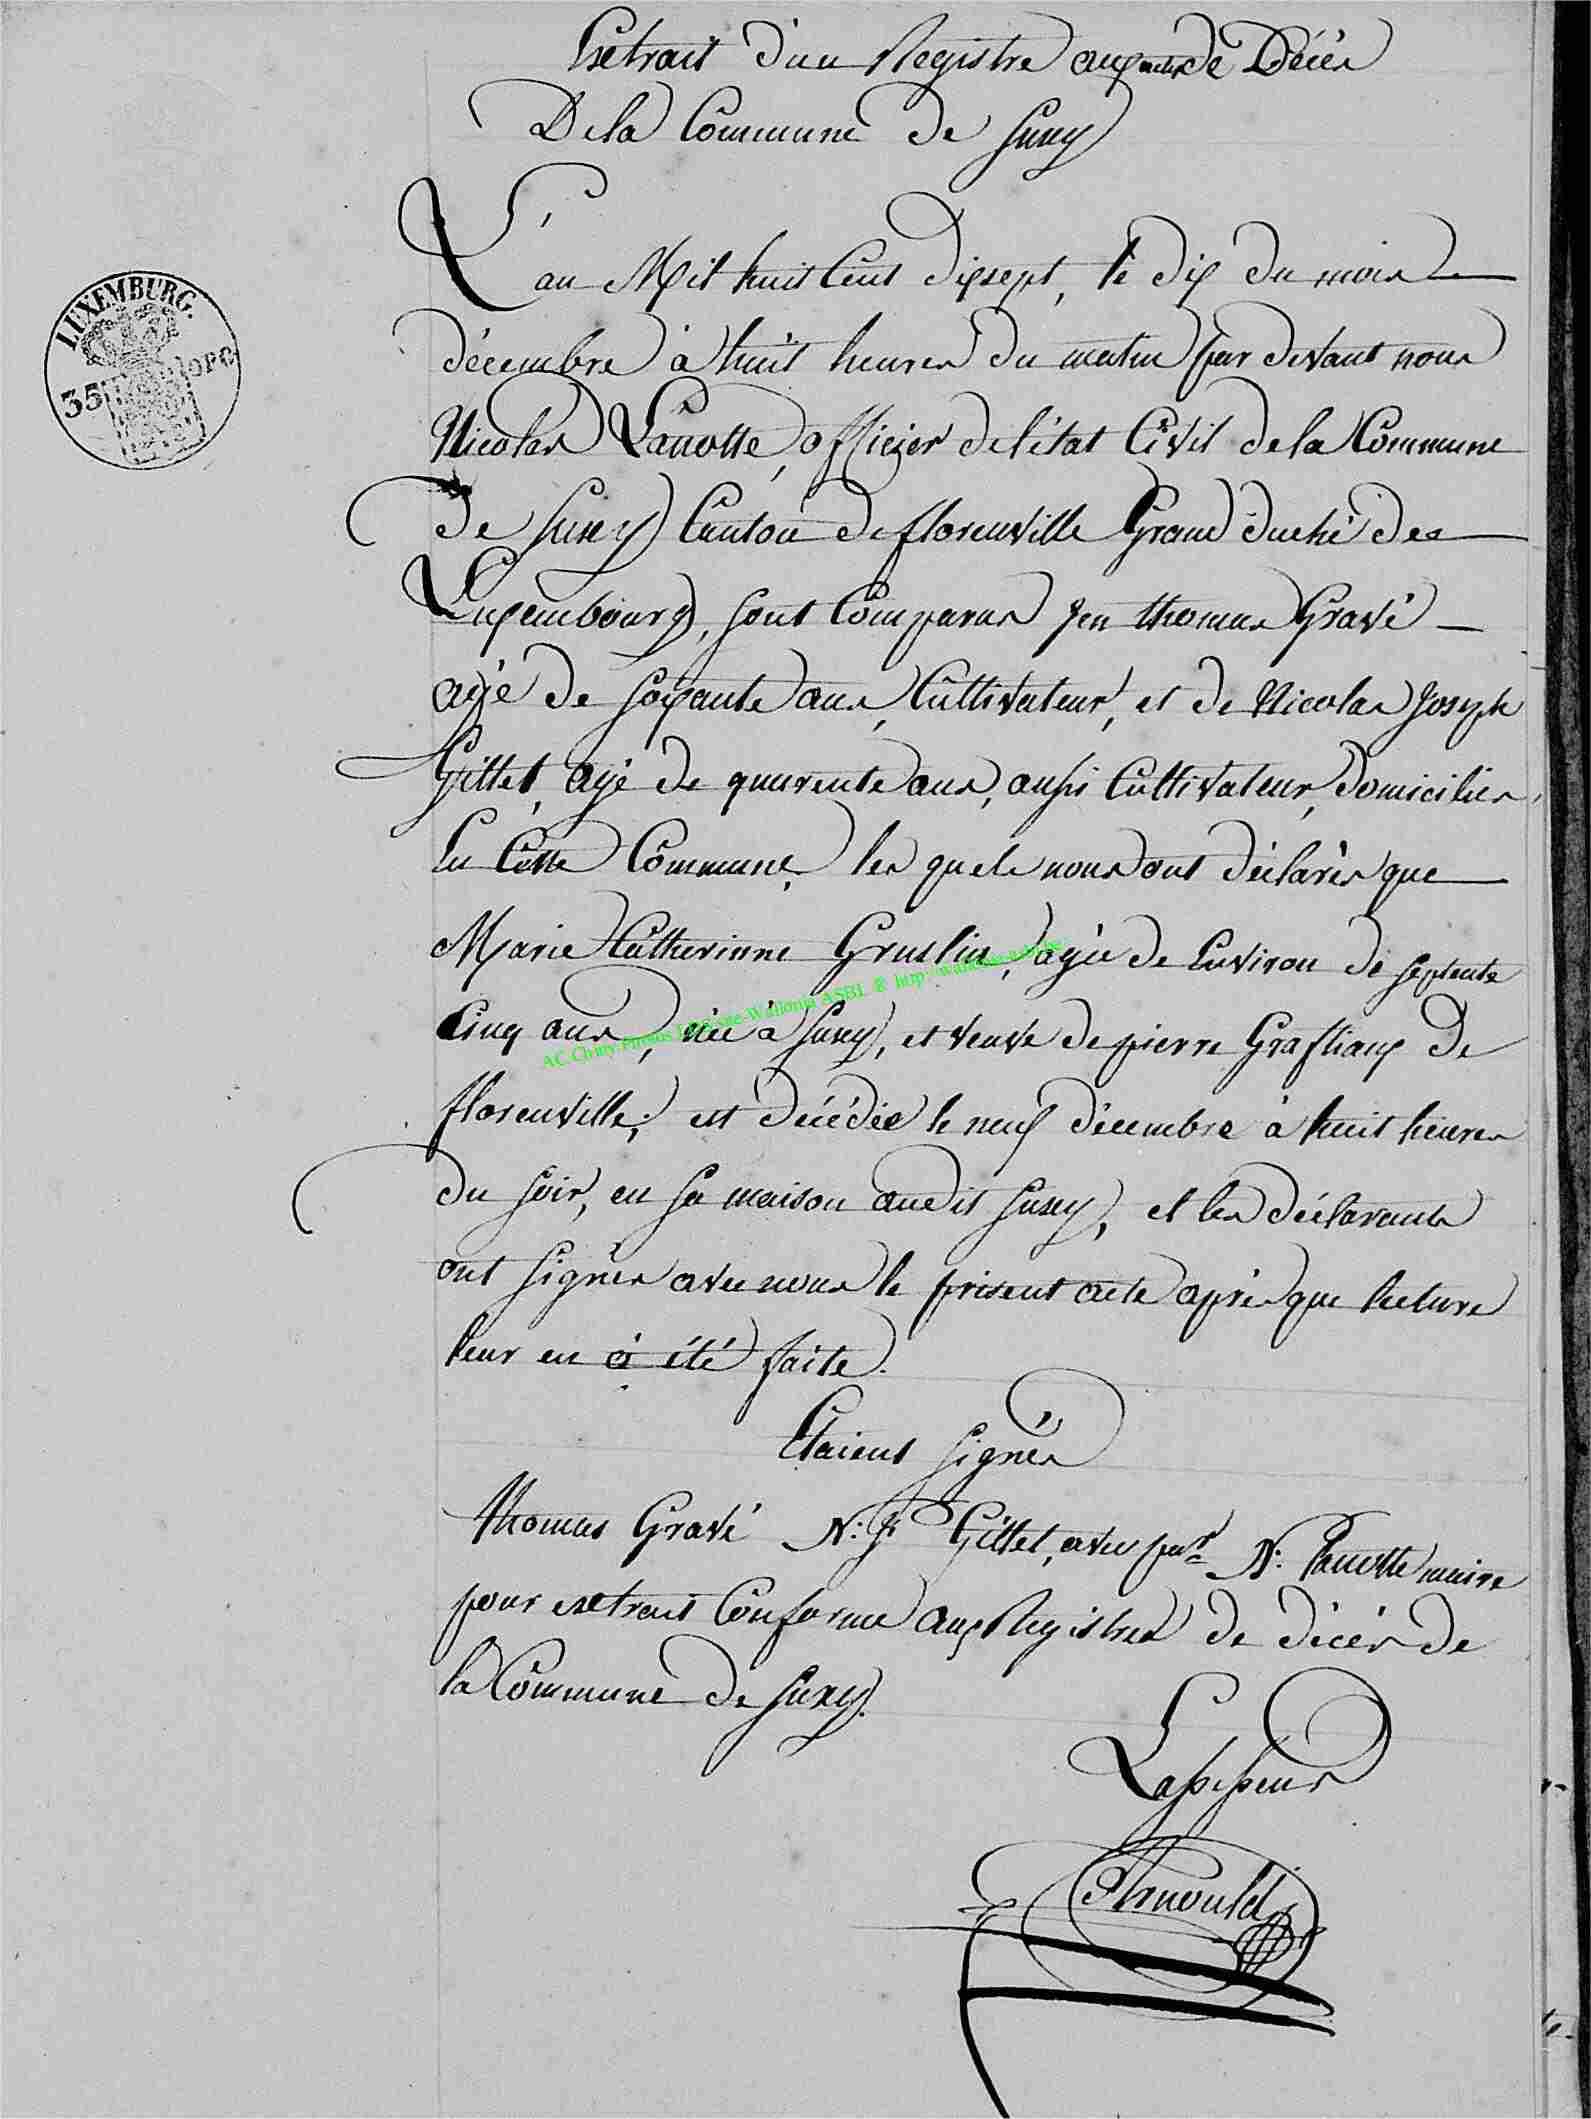 Extrait d'un Registre aux actes de Décès
De la Commune de Suxy
L'an Mil huit Cent dixsept, le dix du mois
décembre à huit heures du matin par devant nous
Nicolas Lanotte, officier de l'état Civil de la Commune
LUXEMBURG.
35 OPC
de Suxey Canton de florenville Grand duché des
Luxembourg, sont Comparus Jen thomas Gravé
agé de soixante ans, Cultivateur, et de Nicolas Joseph
Gillet, agé de quarente ans, aussi Cultivateur, domiciliés
En Cette Commune, les quels nous ont déclarés que
Marie Catherinne Gruslin, agée de Environ de septente
Cinq ans, née à Suxey, et veuve de pierre Graftiaux de
florenville, est décédée le neuf décembre à huit heures
du soir, en sa maison audit Suxey, et les déclarants
ont signés avec nous le présent acte après que lecture
leur en à été faite.
Etaient signés
Thomas Gravé N: J: Gillet, avec par N: Lanotte maire
pour extrait Conforme aux Registres de décès de
la Commune de Suxy.
L'assesseur
Arnould
AC Chiny Photos ASBL & http: